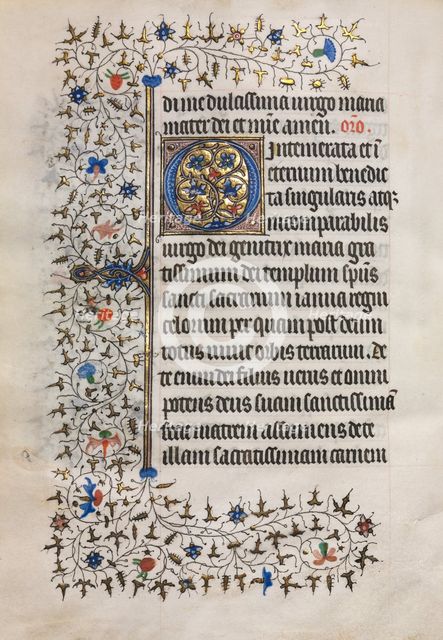 di me dulcissima uirgo maria
mater dei et mie amen. oro.
O intemerata et i
eternum benedic
ta singularis atq
incomparabilis
uirgo dei genitrix maria gra
tissimum dei templum spus
sancti sacrarium ianua regni
celorum per quam post deum
totus uiuit orbis terrarum. De
te enim dei filius uerus et omni
potens deus suam sanctissimā
fecit matrem assumens de te
illam sacratissimam carnem